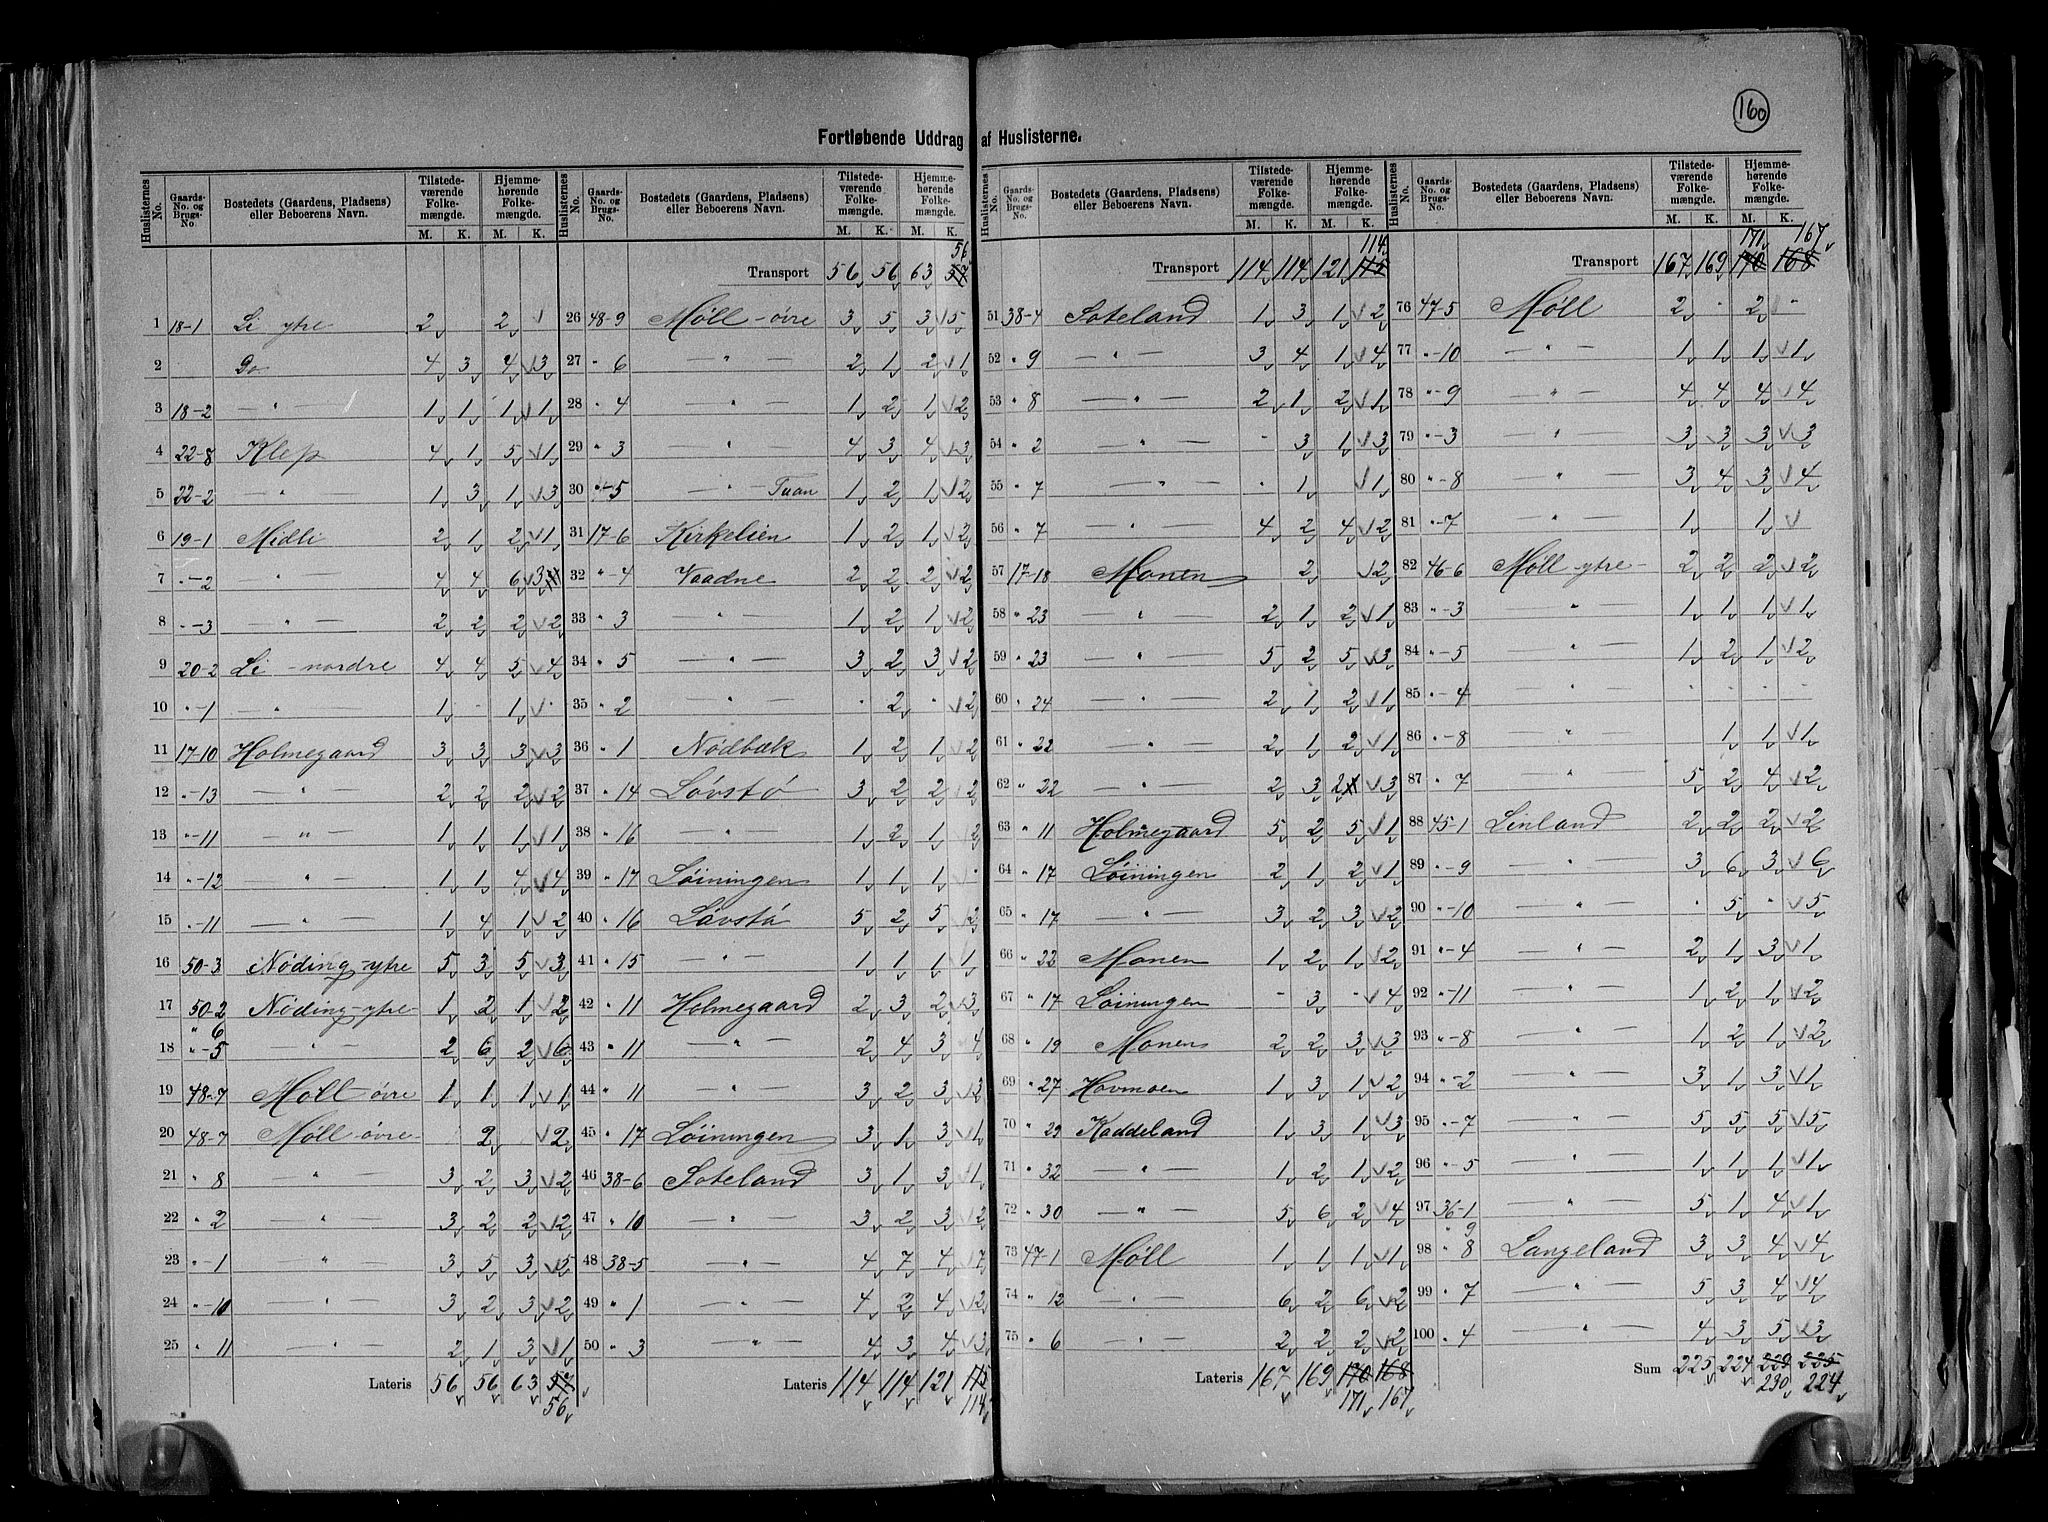 160
Fortløbende Uddrag af Huslisterne.
Huslisternes No. | Gaards-No. og Brugs-No. | Bostedets (Gaardens, Pladsens) eller Beboerens Navn. | Tilstedeværende Folkemængde. M. K. | Hjemmehørende Folkemængde. M. K.
1 18-1 Li ytre 2 2
2 Do 4 3 4 3
3 18-2 — " — 1 1 1 1
4 22-8 Klep 4 1 5 1
5 22-2 — " — 1 3 1 3
6 19-1 Midli 2 1 2 1
7 "-2 — " — 4 4 6 3
8 "-3 — " — 2 2 2 2
9 20-2 Li - nordre 4 4 5 4
10 "-1 — " — 1 - 1 -
11 17-10 Holmegaard 3 3 3 3
12 "-13 — " — 2 2 2 2
13 "-11 — " — 1 1 1 1
14 "-12 — " — 1 1 4 4
15 "-11 — " — 1 4 1 2
16 50-3 Nøding-ytre 5 3 5 3
17 50-2 Nøding-ytre 1 2 1 2
18 " 6 "-5 — " — 2 6 2 6
19 48-7 Møll øvre 1 1 1 1
20 48-7 Møll øvre 2 2
21 " 8 — " — 3 2 3 2
22 " 2 — " — 3 2 2 2
23 "-1 — " — 3 5 3 5
24 "-10 — " — 3 2 3 2
25 " 11 — " — 2 1 3 1
Lateris 56 56 63 57 56
Transport 56 56 63 57 56
26 48-9 Møll-øvre 3 5 3 5
27 " 6 — " — 2 1 2 1
28 " 4 — " — 1 2 1 2
29 " 3 — " — 4 3 4 3
30 "-5 — " — Tuan 1 2 1 2
31 17-6 Kirkelien 1 2 1 2
32 " 4 Vaadne 2 2 2 2
33 " 3 — " — 1 2 1 2
34 " 5 — " — 3 2 3 2
35 " 2 — " — - 2 - 2
36 " 1 Nødbæk 1 2 1 2
37 " 14 Løvstø 3 2 2 2
38 " 16 — " — 1 2 1 2
39 " 17 Løiningen 1 1 1 -
40 " 16 Løvstø 5 2 5 2
41 " 15 — " — 1 1 1 1
42 " 11 Holmegaard 2 3 2 3
43 " 11 — " — 2 4 3 4
44 " 11 — " — 3 2 3 2
45 " 17 Løiningen 3 1 3 1
46 38-6 Soteland 3 1 3 1
47 " 10 — " — 3 2 3 2
48 38-5 — " — 4 7 4 7
49 " 1 — " — 4 2 4 2
50 " 3 — " — 4 3 4 3
Lateris 114 114 121 115 114
Transport 114 114 121 115 114
51 38-4 Soteland 1 3 1 2
52 " 9 — " — 3 4 1 4
53 " 8 — " — 2 1 2 1
54 " 2 — " — - 3 1 3
55 " 7 — " — - 1 1
56 " 7 — " — 4 2 4 2
57 17-18 Monen 2 2
58 " 23 — " — 2 1 2 1
59 " 23 — " — 5 2 5 3
60 " 24 — " — 2 1 2 1
61 " 22 — " — 2 1 2 1
62 " 22 — " — 2 3 2 3
63 " 11 Holmegaard 5 2 5 1
64 " 17 Løiningen 2 1 2 1
65 " 17 — " — 3 2 3 2
66 " 22 Monen 1 2 1 2
67 " 17 Løiningen - 3 - 4
68 " 19 Monen 2 2 3 3
69 " 27 Hovmoen 1 3 1 2
70 " 29 Kaddeland 1 3 1 3
71 " 32 — " — 1 2 1 2
72 " 30 — " — 5 6 2 4
73 47-1 Møll 1 1 1 1
74 " 12 — " — 6 2 6 2
75 " 6 — " — 2 2 2 2
Lateris 167 169 170 168 171 167
Transport 167 169 170 168 171 167
76 47-5 Møll 2 - 2 -
77 "-10 — " — 1 1 1 1
78 "-9 — " — 4 4 4 4
79 "-3 — " — 3 3 3 3
80 "-8 — " — 3 4 3 4
81 "-7 — " — 1 1
82 46-6 Møll-ytre 2 2 2 2
83 "-3 — " — 1 1 1 1
84 "-5 — " — 1 2 1 2
85 "-4 — " — - - - -
86 "-8 — " — 1 1 1
87 " 7 — " — 5 2 4 2
88 45-1 Linland 2 2 2 2
89 "-9 — " — 3 6 3 6
90 "-10 — " — - 5 - 5
91 "-4 — " — 2 1 3 1
92 "-11 — " — 1 2 1 2
93 "-8 — " — 1 2 1 2
94 "-2 — " — 3 1 3 1
95 "-7 — " — 5 5 5 5
96 "-5 — " — 1 1 1 1
97 36-1 — " — 5 1 4 1
98 " 9 " 8 Langeland 3 3 4 4
99 " 7 — " — 5 3 4 4
100 " 4 — " — 4 3 5 3
Sum 225 224 229 225 230 224